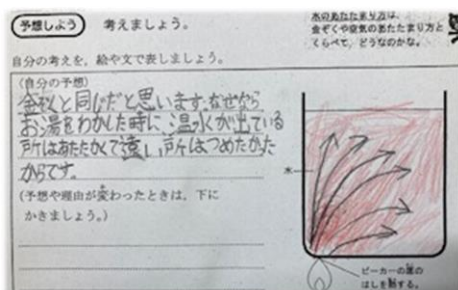 予想しよう 考えましょう。
水のあたたまり方は、
金ぞくや空気のあたたまり方と
くらべて、どうなのかな。
自分の考えを、絵や文で表しましょう。
(自分の予想)
金ぞくと同じだと思います。なぜなら
お湯をわかした時に、温水が出ている
所はあたたかくて遠い所はつめたかった
からです。
(予想や理由が変わったときは、下に
かきましょう。)
水
ビーカーの底の
はしを熱する。